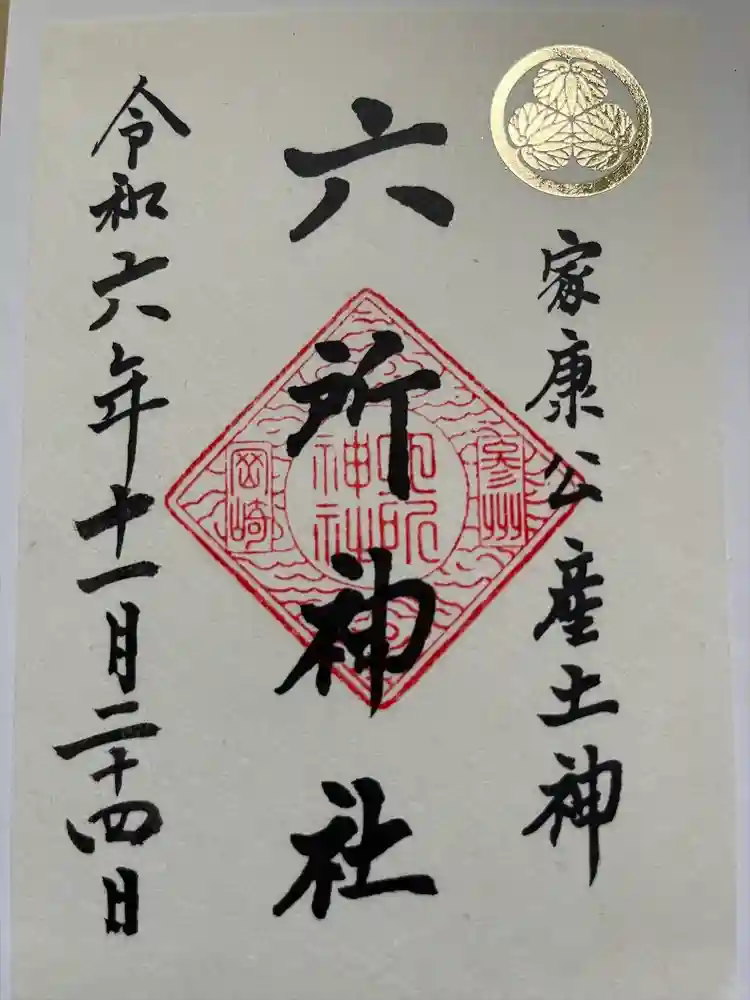 家康公産土神
六所神社
令和六年十一月二十四日
参州
六所神社
岡崎